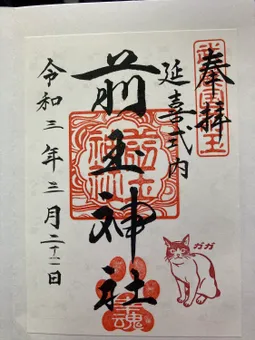 奉拝
延喜式内
前玉神社
令和三年三月二十二日
ガガ
魂